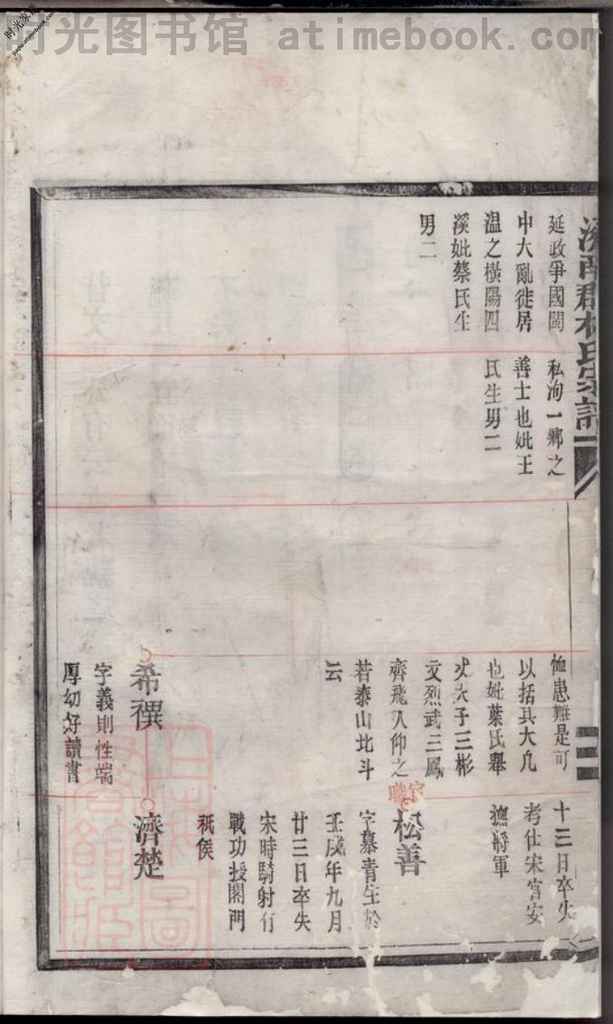 时光图书馆 atimebook.com
郡林氏宗譜
延政爭國閩
中大亂徙居
溫之橫陽四
溪妣蔡氏生
男二
私洵一鄉之
善士也妣王
氏生男二
恤患難是可
以括其大凡
也妣葉氏舉
丈夫子三彬
文烈武三鳳
齊飛人仰之
若泰山北斗
云
希禩
字義則性端
厚幼好讀書
十三日卒失
考仕宋宮安
撫將軍
松善
字慕青生於
壬戌年九月
廿三日卒失
宋時騎射有
戰功授閤門
祇侯
濟楚